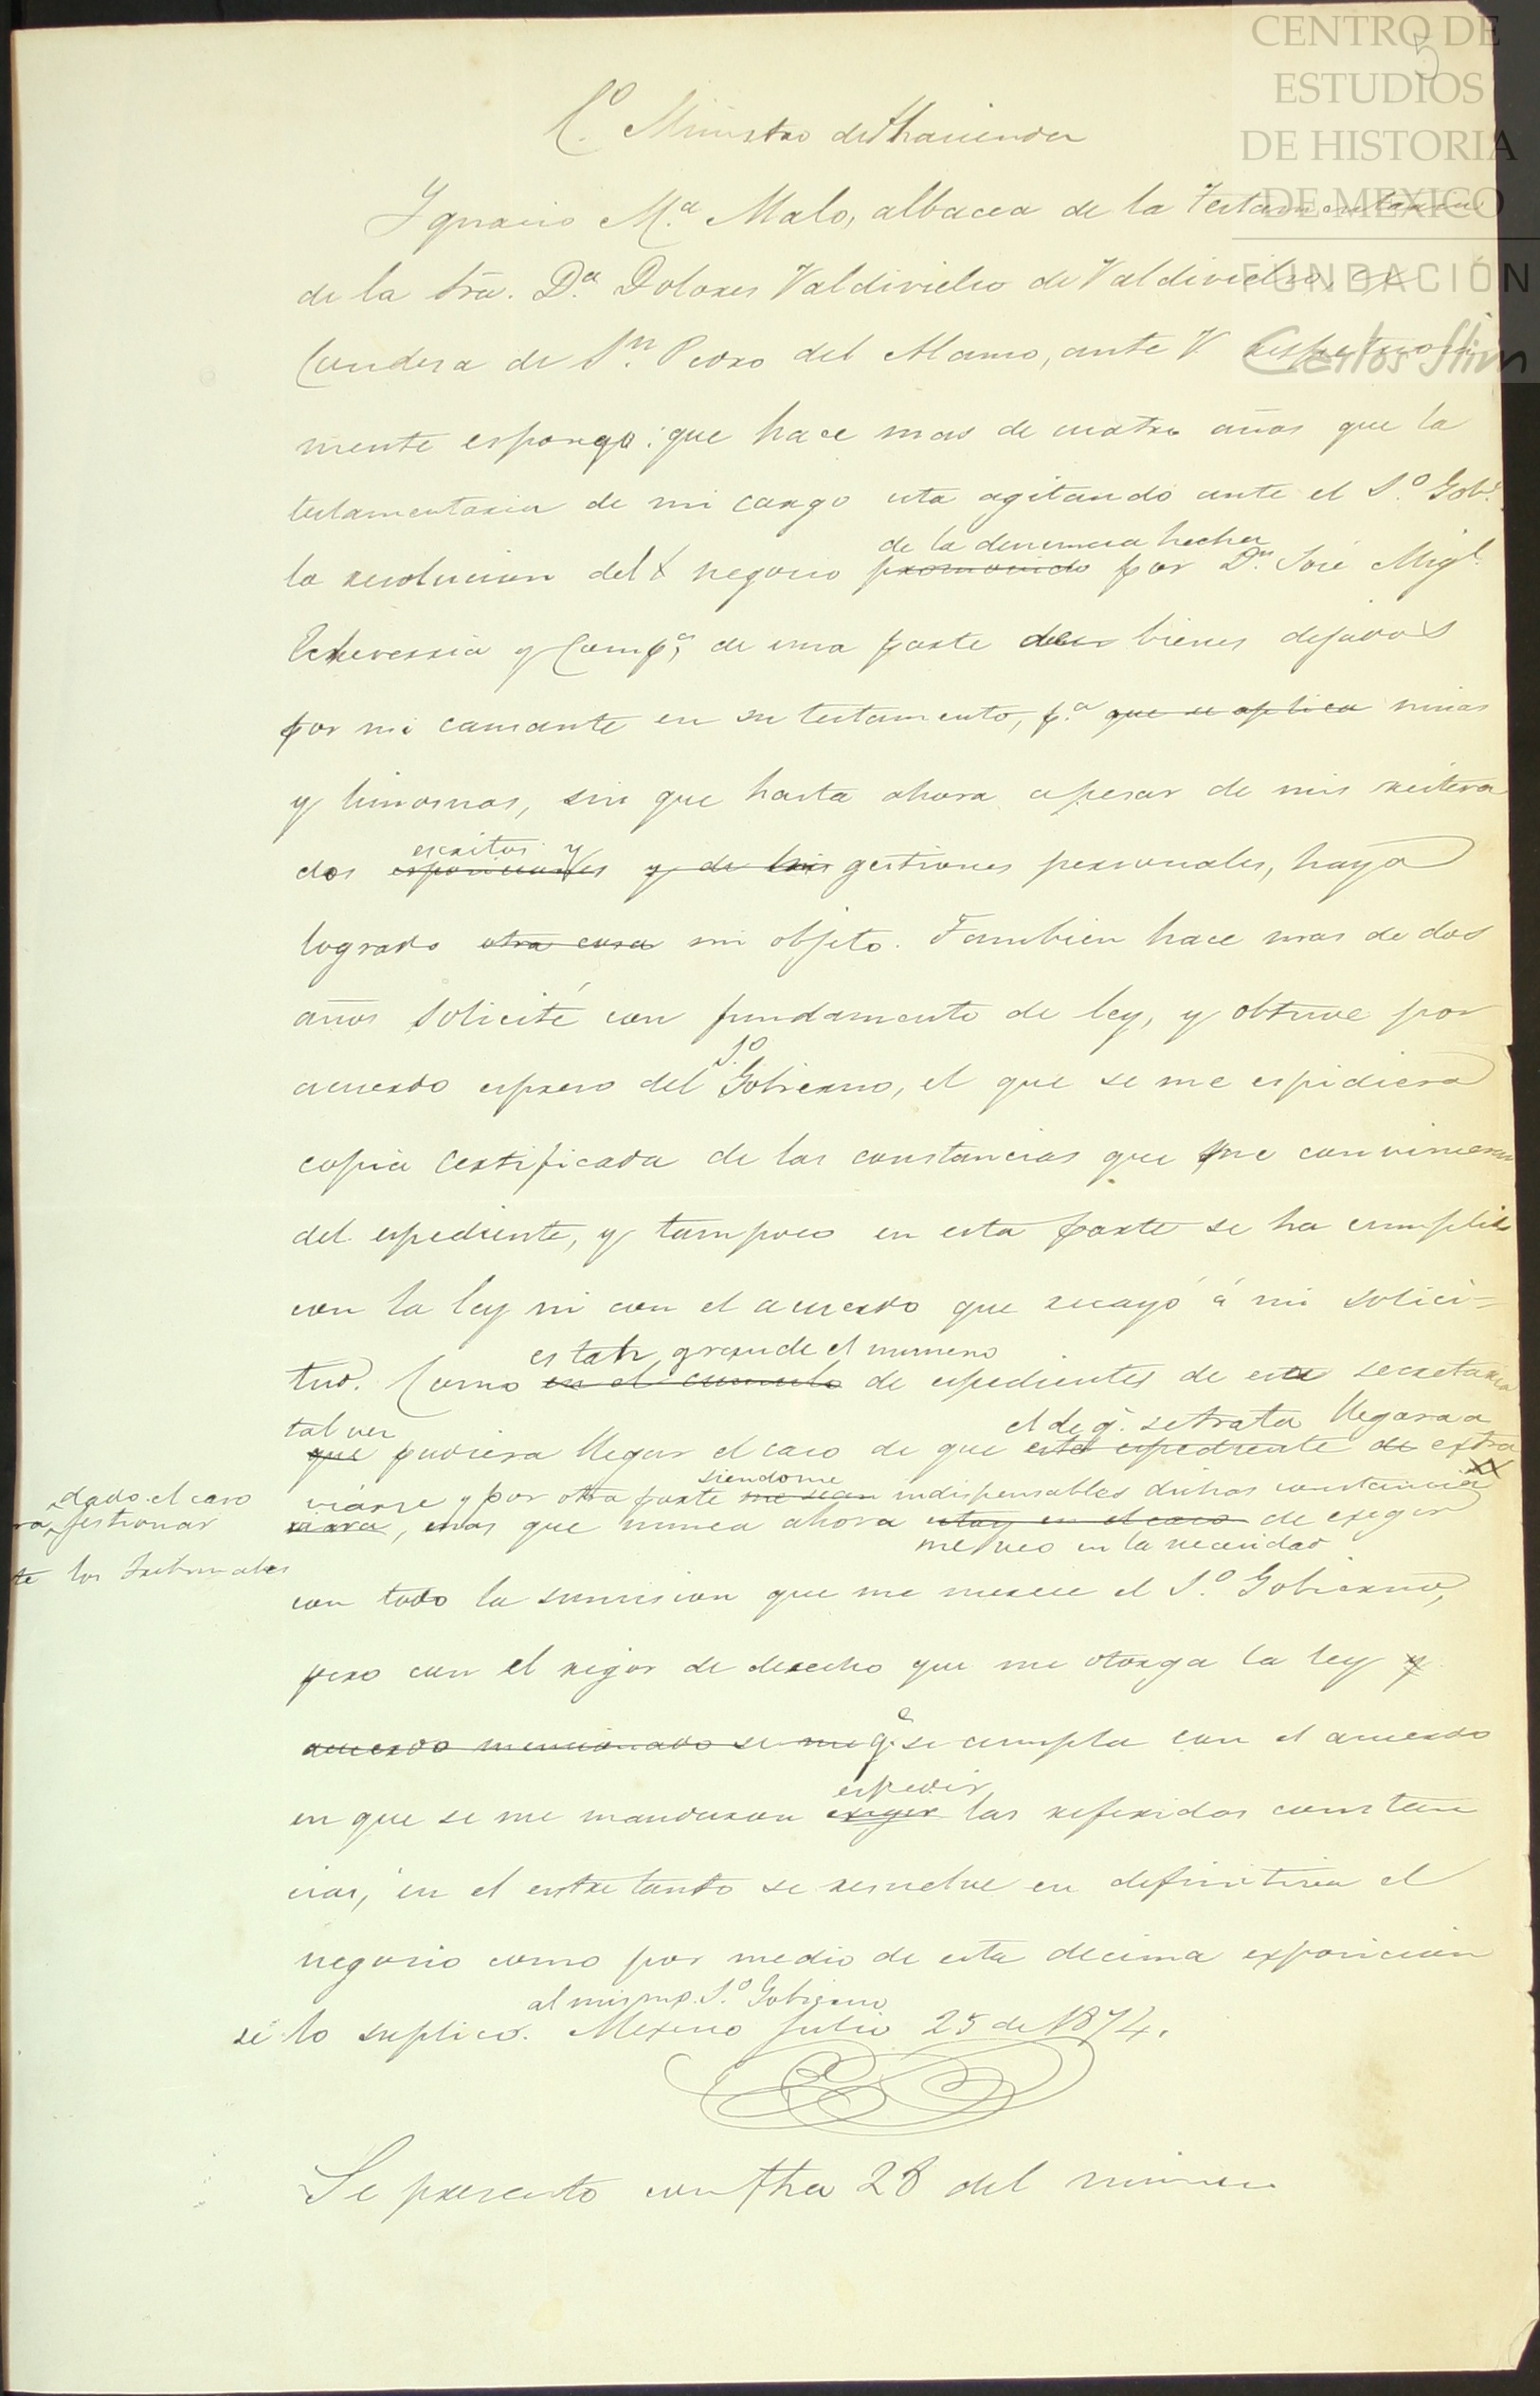 CENTRO DE
ESTUDIOS
DE HISTORIA
DE MEXICO
FUNDACIÓN
Carlos Slim
5
C.º Ministro de Hacienda
Ygnacio M.ª Malo, albacea de la Testamentaria
de la Sra. D.ª Dolores Valdivielso de Valdivielso, ex
Condesa de S.n Pedro del Alamo, ante V respetuosa
mente espongo: que hace mas de cuatro años que la
testamentaria de mi cargo esta agitando ante el S.º Gob.º
de la denuncia hecha
la resolucion del negocio promovido por D.n José Mig.l
Echeverria y Comp.ª, de una parte de los bienes dejados
por mi causante en su testamento, p.ª que se aplica misas
y limosnas, sin que hasta ahora apesar de mis reitera
escritos y
dos esposiciones y de mis gestiones personales, haya
logrado otra cosa mi objeto. Tambien hace mas de dos
años solicité con fundamento de ley, y obtuve por
S.º
acuerdo espreso del Gobierno, el que se me espidiera
copia certificada de las constancias que me convinieran
del espediente, y tampoco en esta parte se ha cumplido
con la ley ni con el acuerdo que recayó á mi solici=
es tan grande el numero
tud. Como en el cumulo de espedientes de esa secretaria
tal vez
el de q.e se trata llegara a
que pudiera llegar el caso de que este espediente de extra
siendome
viarse y por otra parte me sean indispensables dichas constancias
dado el caso
ra gestionar
te los tribunales
viara, mas que nunca ahora estoy en el caso de exegir
me veo en la necesidad
con todo la sumision que me merece el S.º Gobierno,
pero con el rigor de derecho que me otorga la ley y
acuerdo mencionado se me q.e se cumpla con el acuerdo
espedir
en que se me mandaron exegir las referidas constan
cias, en el entre tanto se resuelve en definitiva el
negocio como por medio de esta decima exposicion
al mismo S.º Gobierno
se lo suplico. Mexico Julio 25 de 1874.
Se presento con fha 28 del mismo